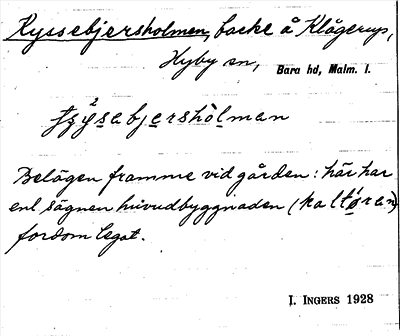 Kyssebjersholmen, backe å Klågerup,
Hyby sn, Bara hd, Malm. l.
Belägen framme vid gården: här har
enl sägnen huvudbyggnaden (kaltøran)
fordom legat.
J. INGERS 1928